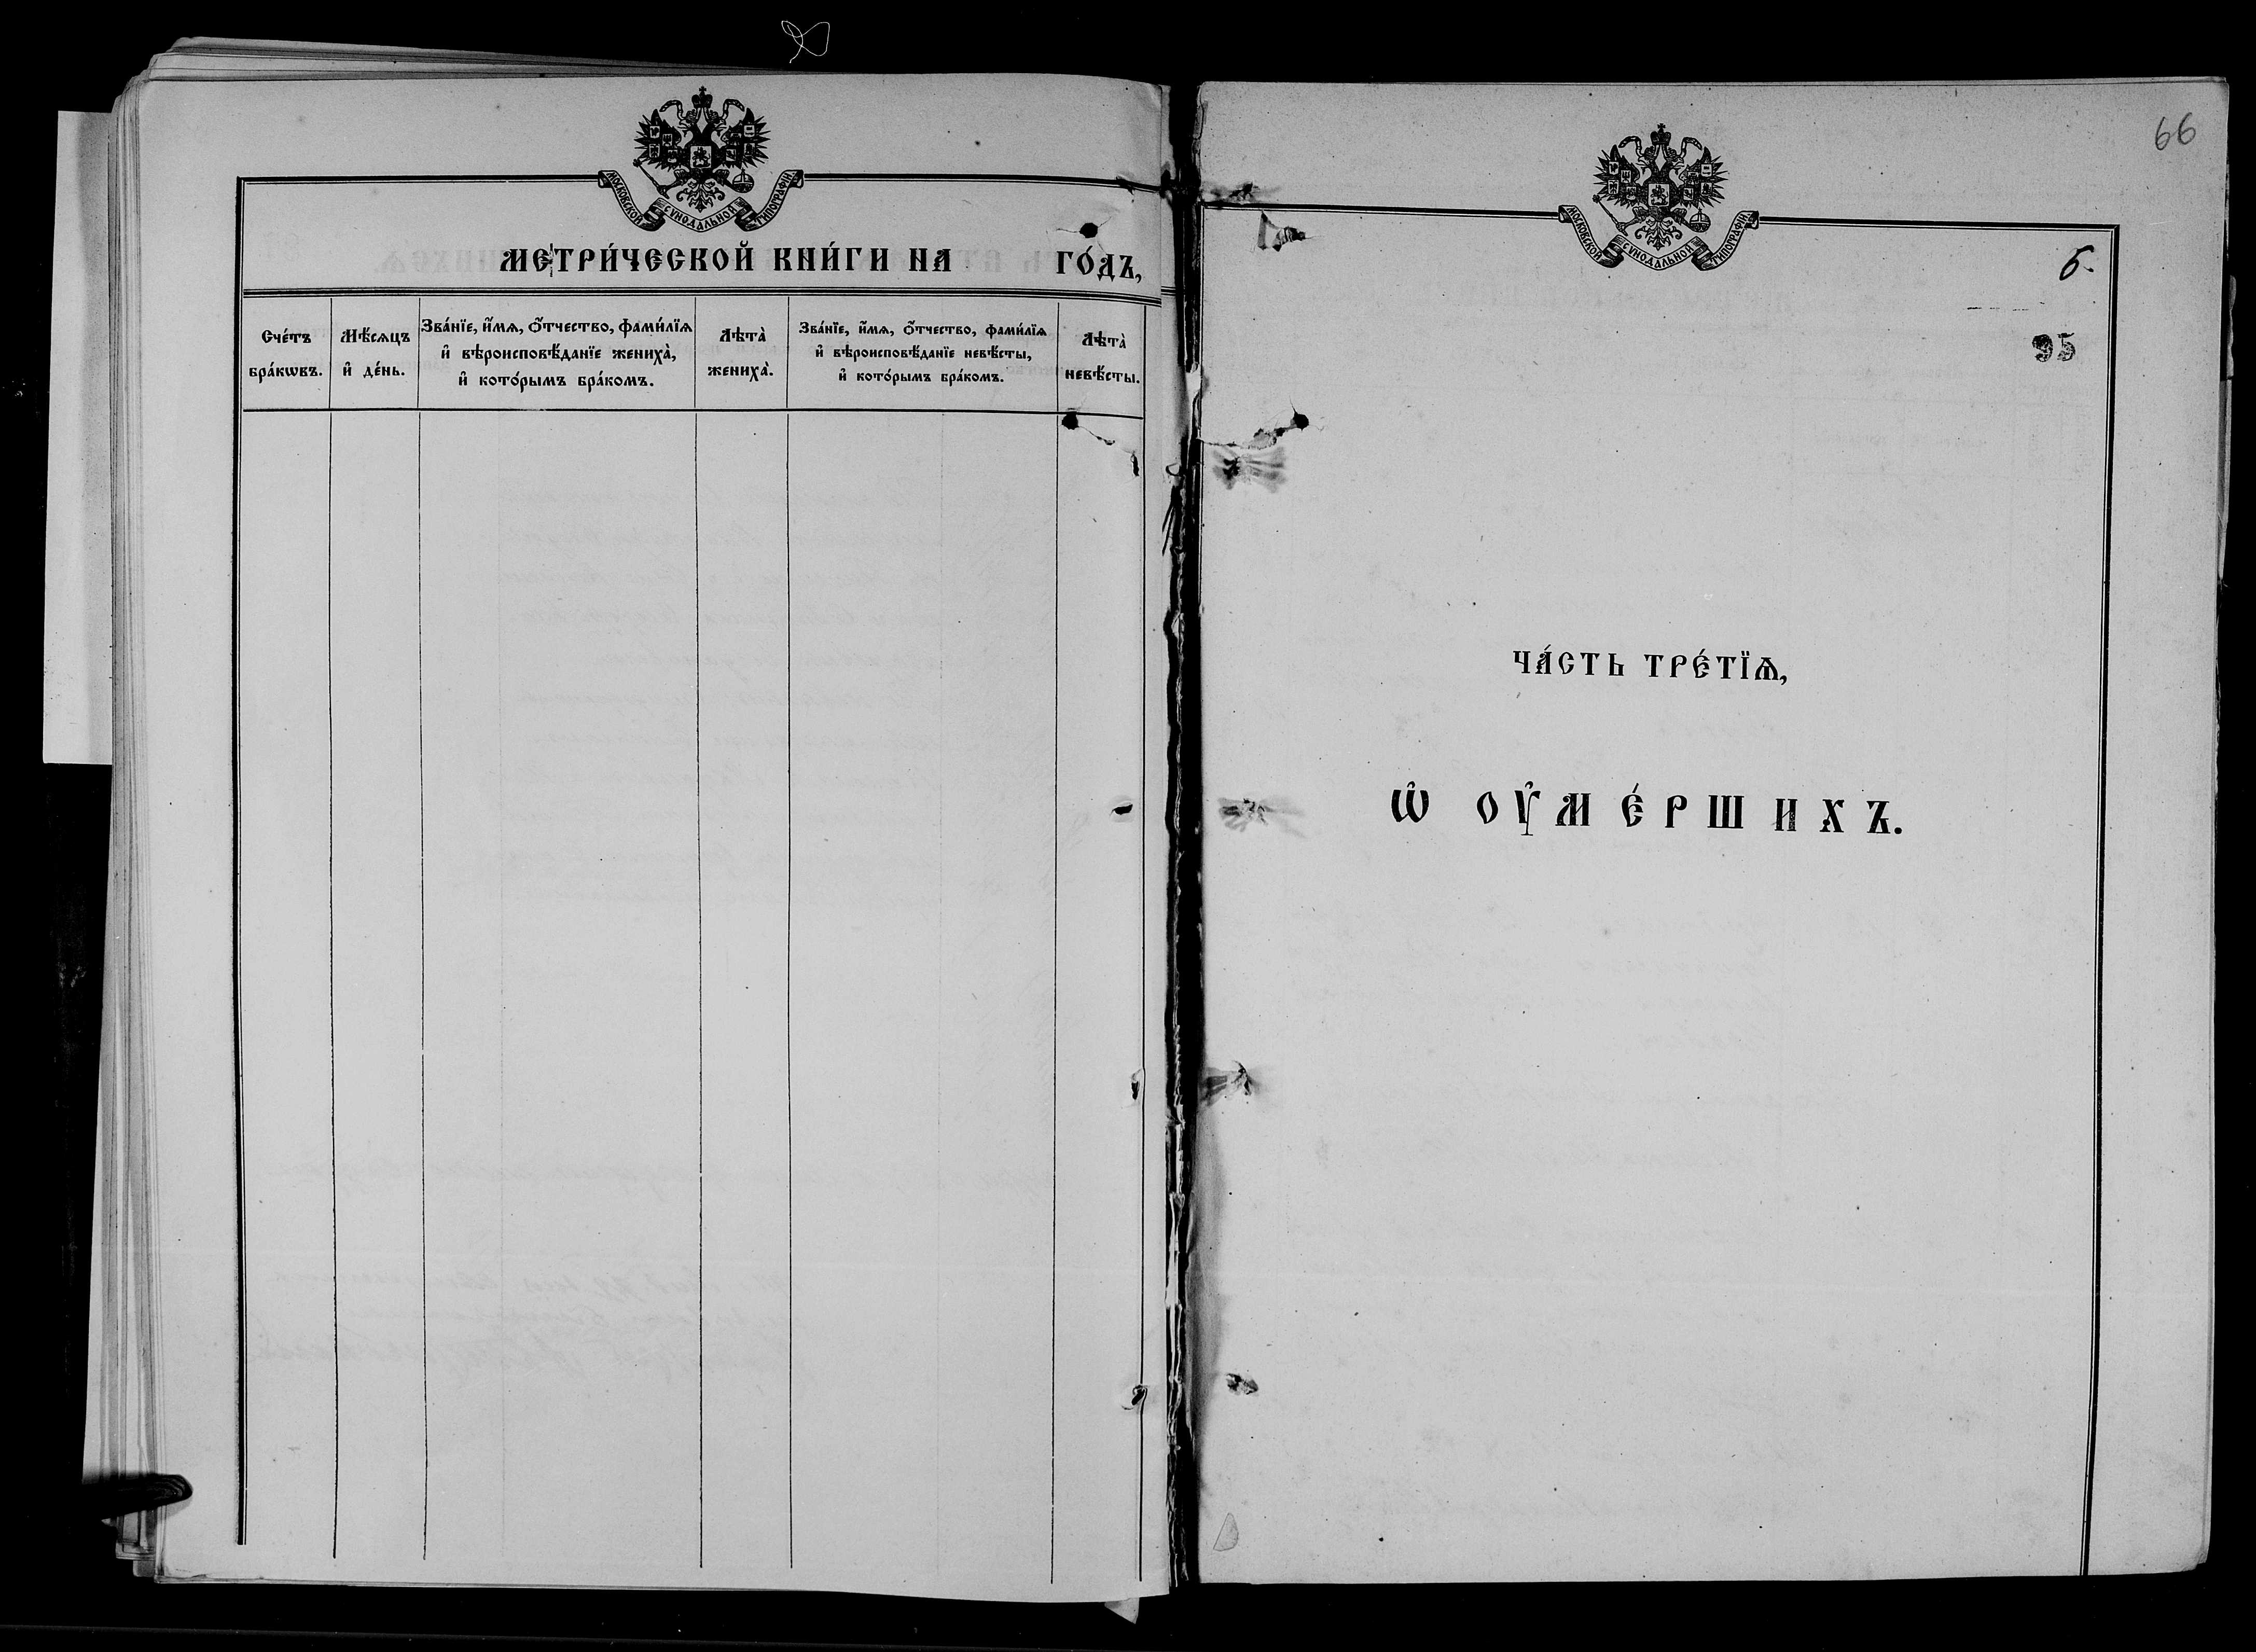 МОСКОВСКОЙ СѴНОДАЛЬНОЙ ТИПОГРАФІИ.
МЕТРИ́ЧЕСКОЙ КНИ́ГИ НА ГО́ДЪ,
Сче́тъ
бра́кѡвъ.
Мѣ́сѧцъ
и҆ де́нь.
Зва́нїе, и҆́мѧ, ѻ҆́тчество, фами́лїѧ
и҆ вѣроисповѣ́данїе женихà,
и҆ кото́рымъ бра́комъ.
Лѣтà
женихà.
Зва́нїе, и҆́мѧ, ѻ҆́тчество, фами́лїѧ
и҆ вѣроисповѣ́данїе невѣ́сты,
и҆ кото́рымъ бра́комъ.
Лѣтà
невѣ́сты.
66
МОСКОВСКОЙ СѴНОДАЛЬНОЙ ТИПОГРАФІИ.
95
ЧА́СТЬ ТРЕ́ТЇѦ,
Ѡ҆ ОУ҆МЕ́РШИХЪ.